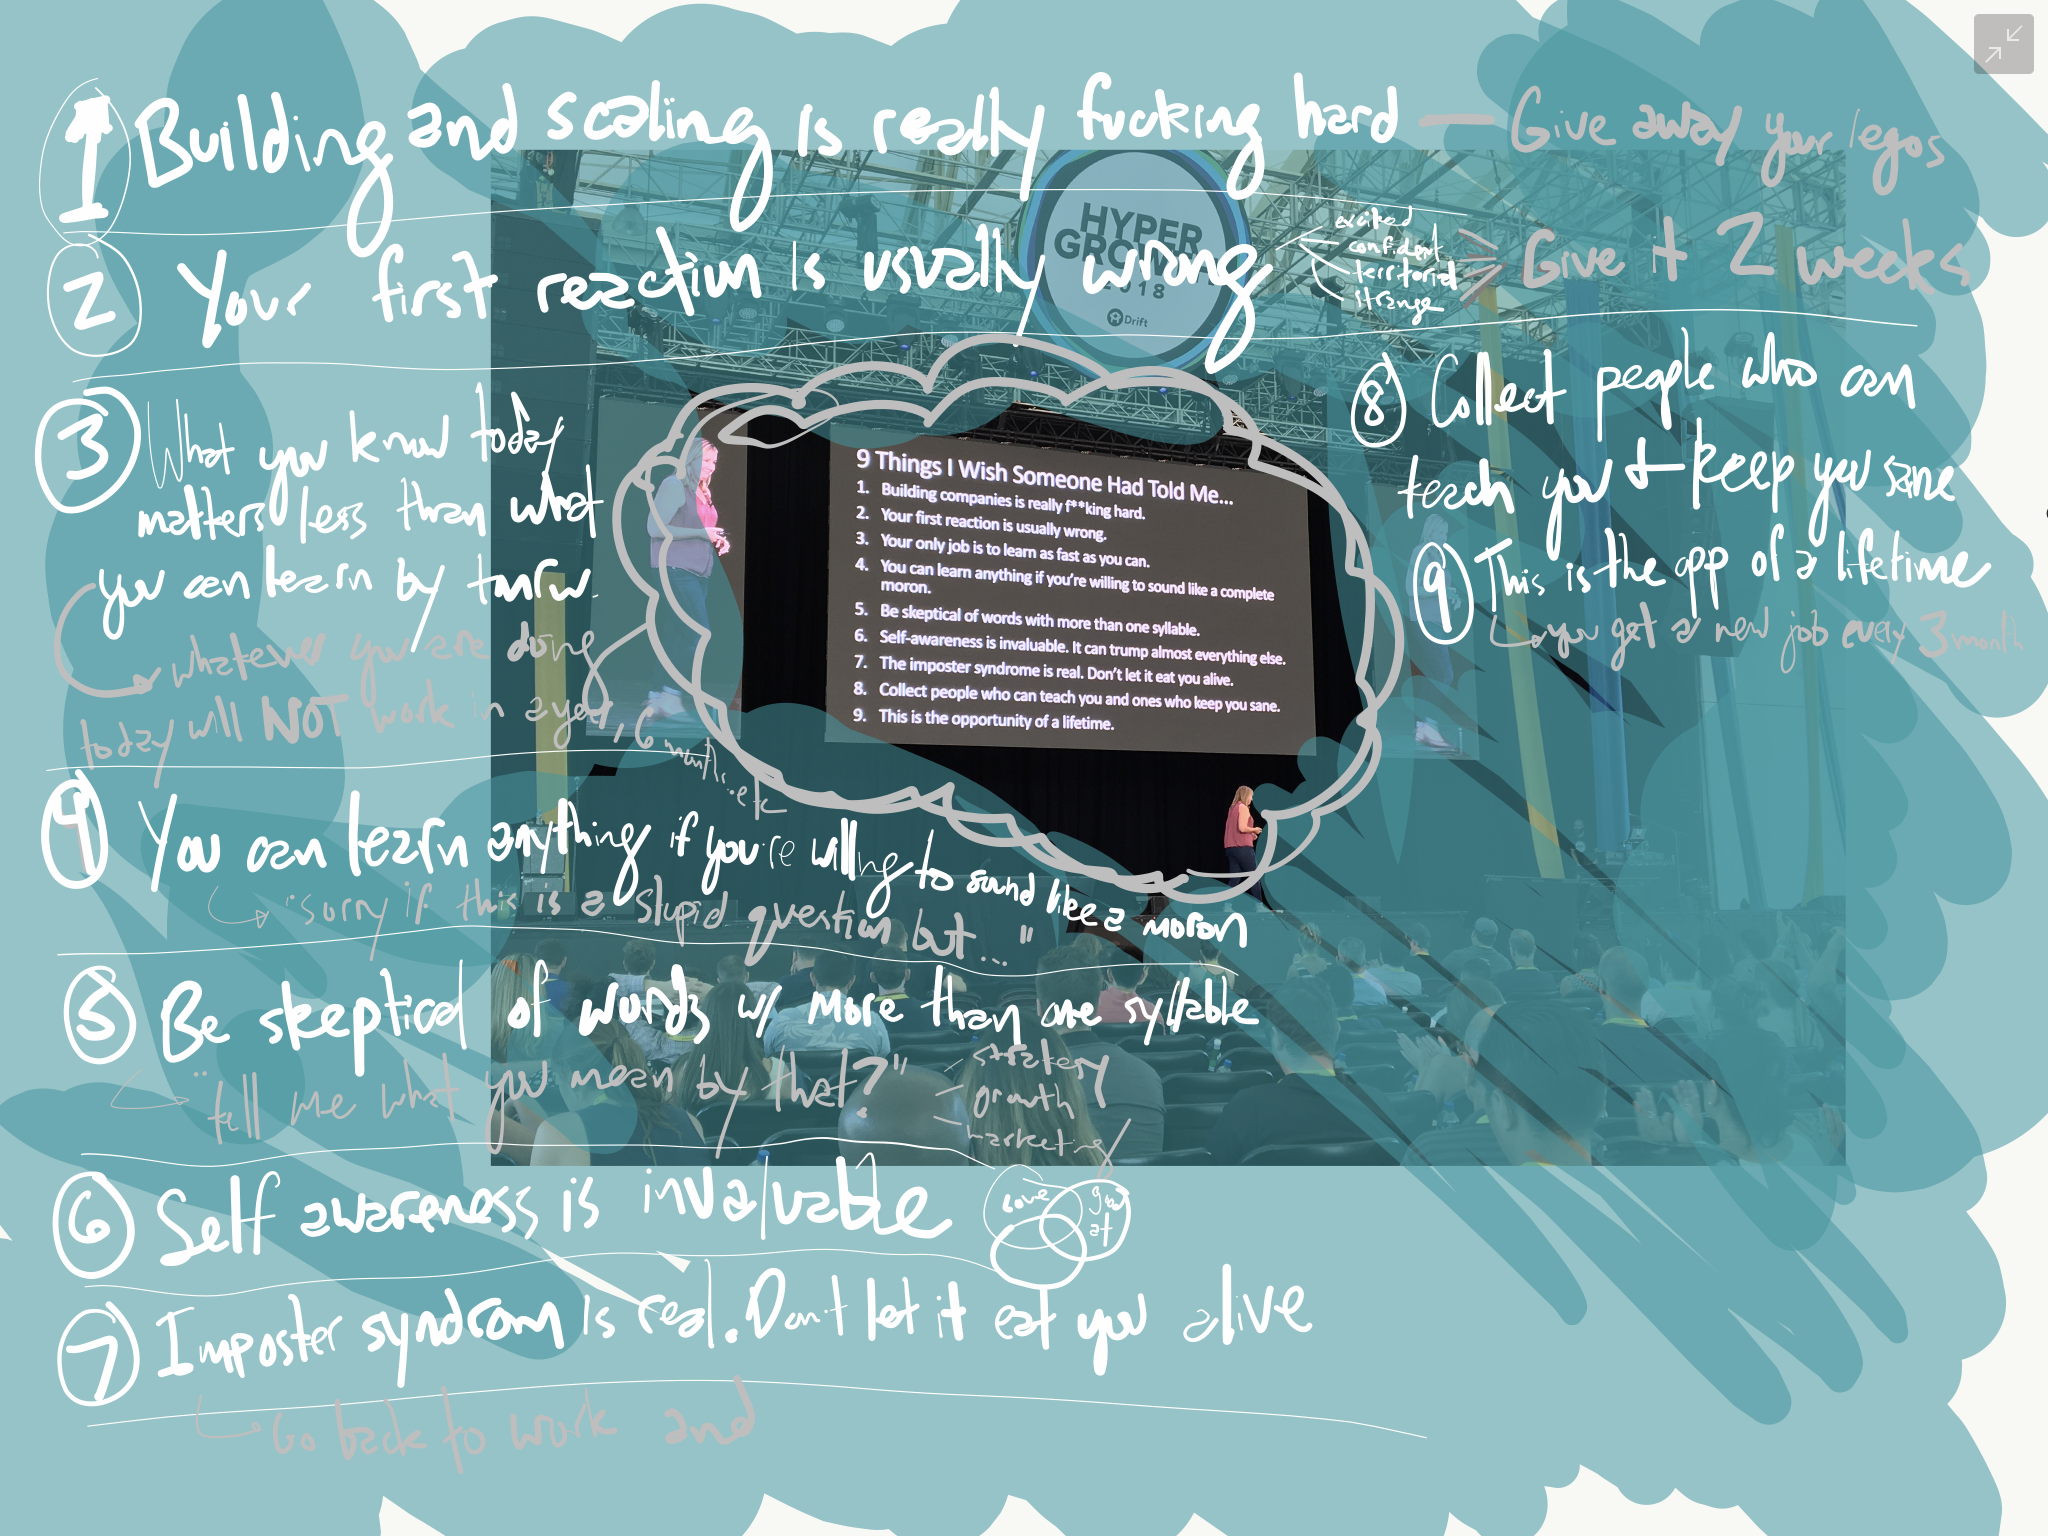 1 Building and scaling is really fucking hard — Give away your legos
2 Your first reaction is usually wrong
excited
confident
territorial
strange
Give it 2 weeks
3 What you know today
matters less than what
you can learn by tmrw.
whatever you are doing
today will NOT work in a year, 6 months..etc
4 You can learn anything if you're willing to sound like a moron
"sorry if this is a stupid question but ..."
5 Be skeptical of words w/ more than one syllable
"tell me what you mean by that?"
strategy
growth
marketing
6 Self awareness is invaluable
love
good
at
7 Imposter syndrom is real. Don't let it eat you alive
Go back to work and
8 Collect people who can
teach you + keep you sane
9 This is the opp of a lifetime
you get a new job every 3 month
HYPER
GROWTH
2018
Drift
9 Things I Wish Someone Had Told Me...
1. Building companies is really f**king hard.
2. Your first reaction is usually wrong.
3. Your only job is to learn as fast as you can.
4. You can learn anything if you're willing to sound like a complete
moron.
5. Be skeptical of words with more than one syllable.
6. Self-awareness is invaluable. It can trump almost everything else.
7. The imposter syndrome is real. Don't let it eat you alive.
8. Collect people who can teach you and ones who keep you sane.
9. This is the opportunity of a lifetime.